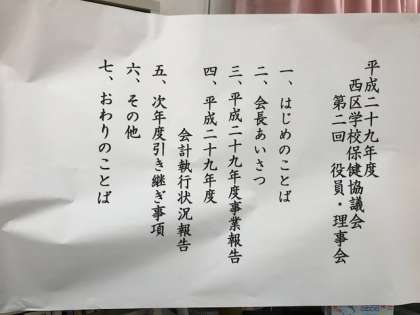 平成二十九年度
西区学校保健協議会
第二回 役員・理事会
一、はじめのことば
二、会長あいさつ
三、平成二十九年度事業報告
四、平成二十九年度
会計執行状況報告
五、次年度引き継ぎ事項
六、その他
七、おわりのことば